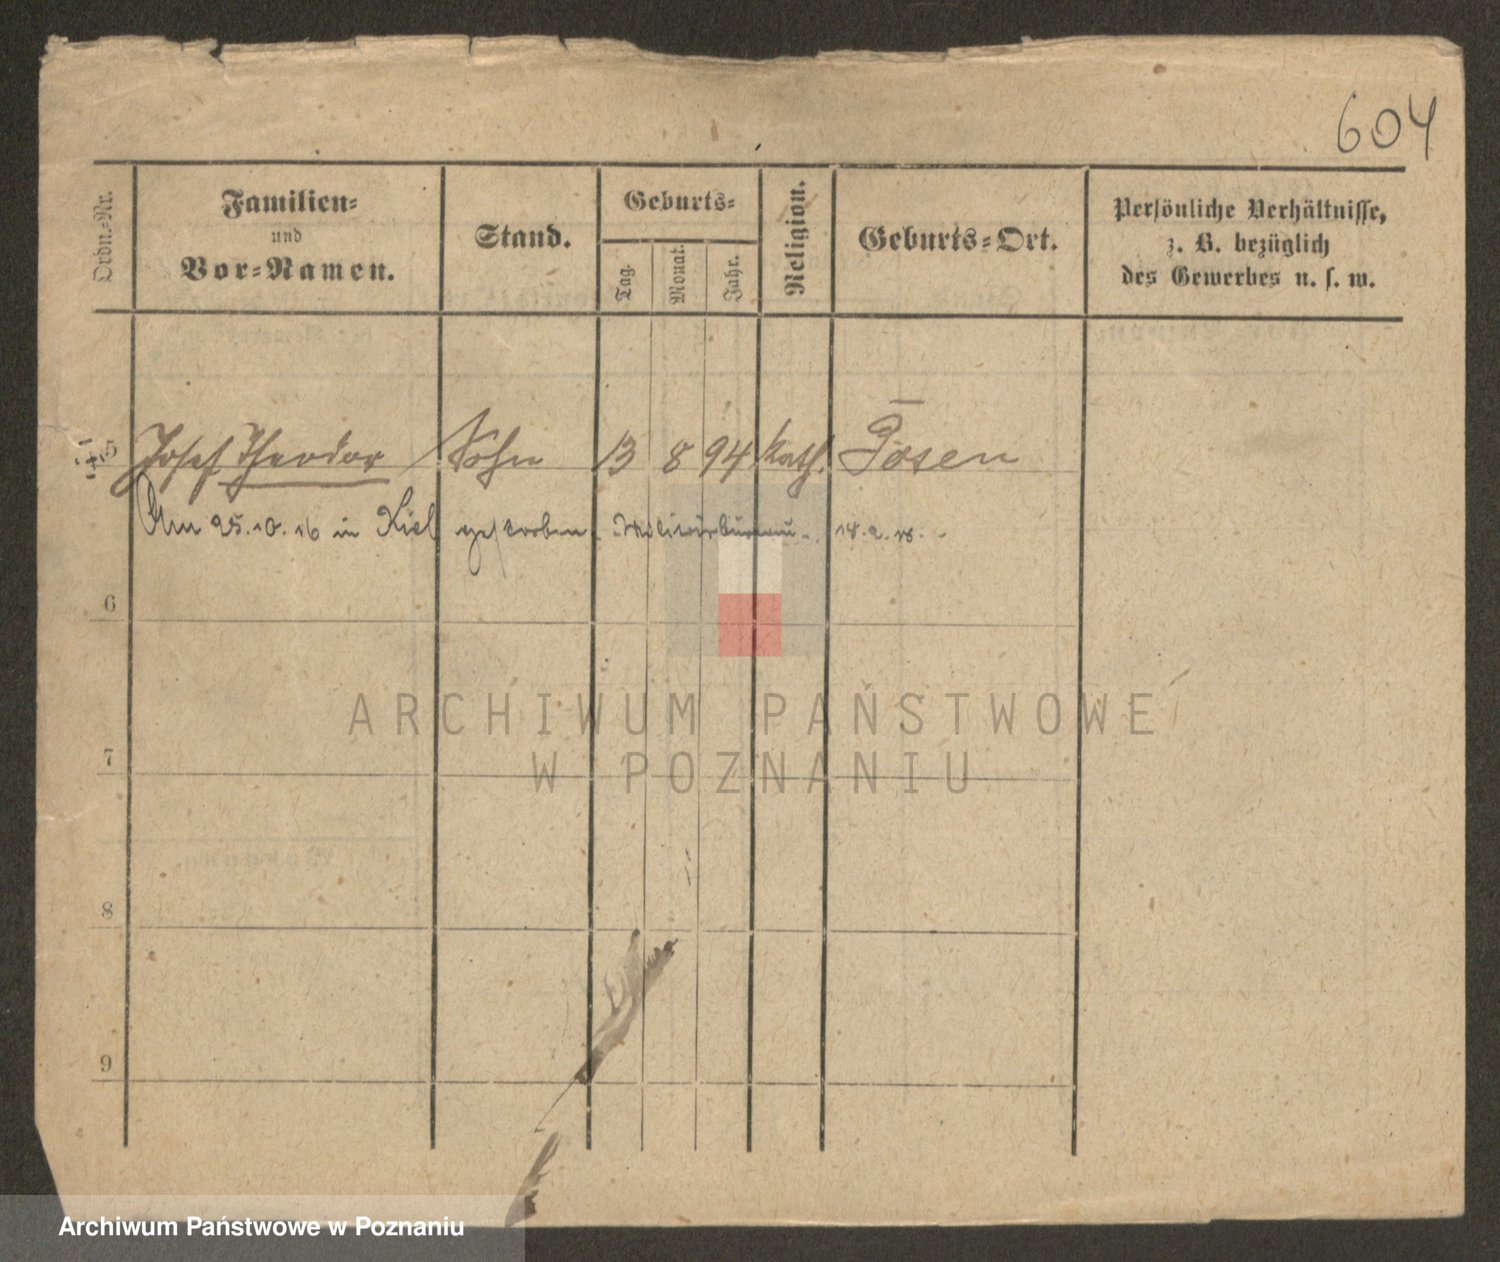 604
Ordn.-Nr.
Familien-
und
Vor-Namen.
Stand.
Geburts-
Tag.
Monat.
Jahr.
Religion.
Geburts-Ort.
Persönliche Verhältnisse,
z. B. bezüglich
des Gewerbes u. s. w.
5 Josef Theodor Sohn 13 8 94 kath. Posen
Am 25.10.16 in Kiel gestorben. Militärbüreau
6
ARCHIWUM PAŃSTWOWE
W POZNANIU
7
8
9
Archiwum Państwowe w Poznaniu